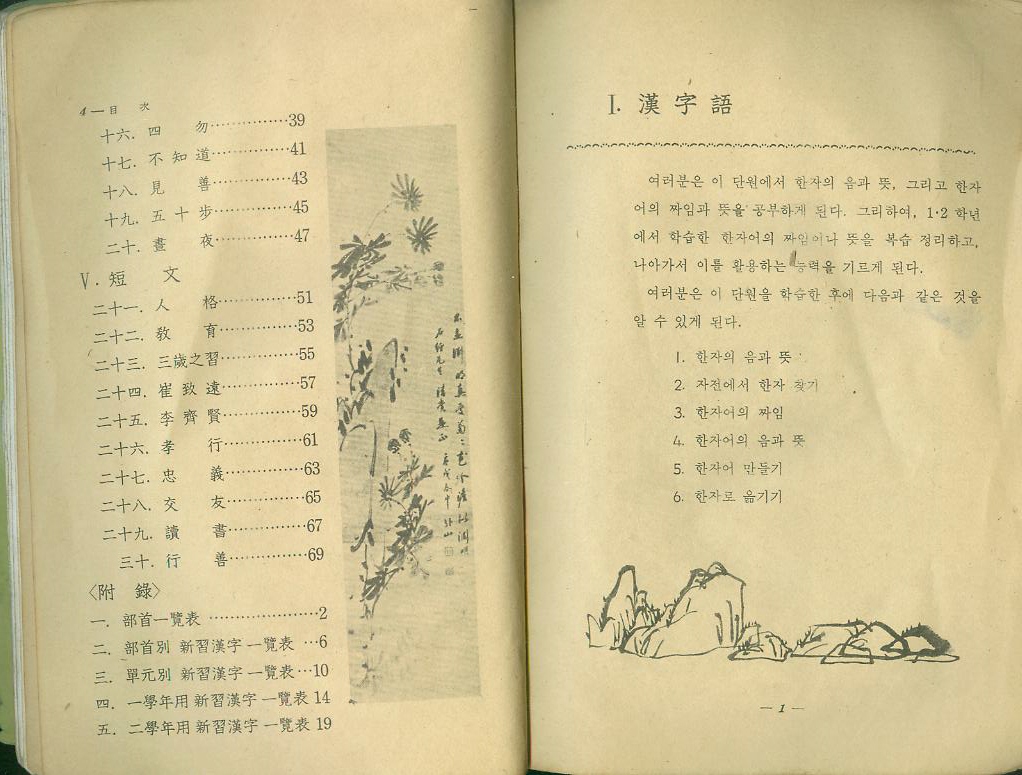 4 — 目 次
十六. 四 勿……………39
十七. 不 知 道……………41
十八. 見 善……………43
十九. 五 十 步……………45
二十. 晝 夜……………47
Ⅴ. 短 文
二十一. 人 格……………51
二十二. 敎 育……………53
二十三. 三歲之習……………55
二十四. 崔 致 遠……………57
二十五. 李 齊 賢……………59
二十六. 孝 行……………61
二十七. 忠 義……………63
二十八. 交 友……………65
二十九. 讀 書……………67
三十. 行 善……………69
〈附 錄〉
一. 部首一覽表 …………………2
二. 部首別 新習漢字 一覽表 …6
三. 單元別 新習漢字 一覽表…10
四. 一學年用 新習漢字 一覽表 14
五. 二學年用 新習漢字 一覽表 19
Ⅰ. 漢 字 語
여러분은 이 단원에서 한자의 음과 뜻, 그리고 한자
어의 짜임과 뜻을 공부하게 된다. 그리하여, 1·2 학년
에서 학습한 한자어의 짜임이나 뜻을 복습 정리하고,
나아가서 이를 활용하는 능력을 기르게 된다.
여러분은 이 단원을 학습한 후에 다음과 같은 것을
알 수 있게 된다.
1. 한자의 음과 뜻
2. 자전에서 한자 찾기
3. 한자어의 짜임
4. 한자어의 음과 뜻
5. 한자어 만들기
6. 한자로 옮기기
— 1 —